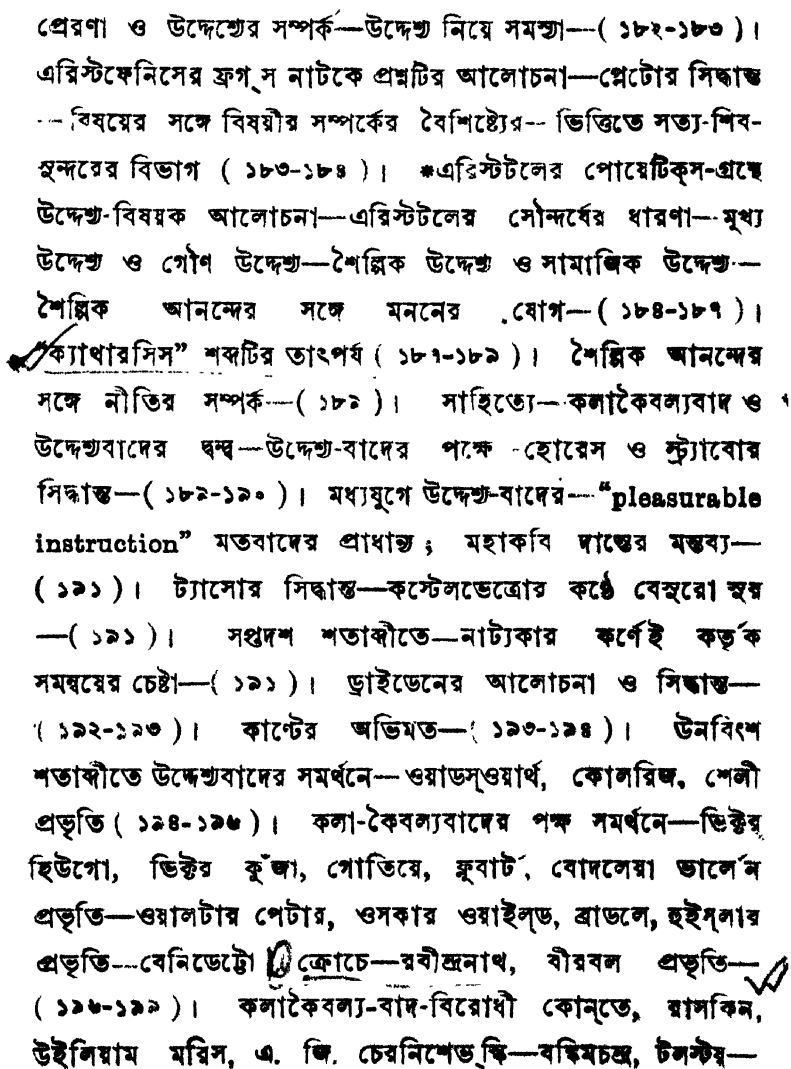 প্রেরণা ও উদ্দেশ্যের সম্পর্ক—উদ্দেশ্য নিয়ে সমস্যা—( ১৮২-১৮৩ )।
এরিস্টফেনিসের ফ্রগ্‌স নাটকে প্রশ্নটির আলোচনা—প্লেটোর সিদ্ধান্ত
—বিষয়ের সঙ্গে বিষয়ীর সম্পর্কের বৈশিষ্ট্যের—ভিত্তিতে সত্য-শিব-
সুন্দরের বিভাগ ( ১৮৩-১৮৪ )। *এরিস্টটলের পোয়েটিক্‌স-গ্রন্থে
উদ্দেশ্য-বিষয়ক আলোচনা—এরিস্টটলের সৌন্দর্যের ধারণা—মুখ্য
উদ্দেশ্য ও গৌণ উদ্দেশ্য—শৈল্পিক উদ্দেশ্য ও সামাজিক উদ্দেশ্য—
শৈল্পিক আনন্দের সঙ্গে মননের যোগ—( ১৮৪-১৮৭ )।
“ক্যাথারসিস” শব্দটির তাৎপর্য ( ১৮৭-১৮৯ )। শৈল্পিক আনন্দের
সঙ্গে নীতির সম্পর্ক—( ১৮৯ )। সাহিত্যে—কলাকৈবল্যবাদ ও
উদ্দেশ্যবাদের দ্বন্দ্ব—উদ্দেশ্য-বাদের পক্ষে হোরেস ও স্ট্র্যাবোর
সিদ্ধান্ত—( ১৮৯-১৯০ )। মধ্যযুগে উদ্দেশ্য-বাদের—“pleasurable
instruction” মতবাদের প্রাধান্য ; মহাকবি দান্তের মন্তব্য—
( ১৯১ )। ট্যাসোর সিদ্ধান্ত—কস্টেলভেত্রোর কণ্ঠে বেসুরো সুর
—( ১৯১ )। সপ্তদশ শতাব্দীতে—নাট্যকার কর্ণেই কর্তৃক
সমন্বয়ের চেষ্টা—( ১৯১ )। ড্রাইডেনের আলোচনা ও সিদ্ধান্ত—
( ১৯২-১৯৩ )। কাণ্টের অভিমত—( ১৯৩-১৯৪ )। ঊনবিংশ
শতাব্দীতে উদ্দেশ্যবাদের সমর্থনে—ওয়াডস্‌ওয়ার্থ, কোলরিজ, শেলী
প্রভৃতি ( ১৯৪-১৯৬ )। কলা-কৈবল্যবাদের পক্ষ সমর্থনে—ভিক্টর
হিউগো, ভিক্টর কুঁজা, গোতিয়ে, ফ্লুবার্ট, বোদলেয়া ভার্লেন
প্রভৃতি—ওয়ালটার পেটার, ওসকার ওয়াইল্‌ড, ব্রাডলে, হুইস্‌লার
প্রভৃতি—বেনিডেট্টো ক্রোচে—রবীন্দ্রনাথ, বীরবল প্রভৃতি—
( ১৯৬-১৯৯ )। কলাকৈবল্য-বাদ-বিরোধী কোন্‌তে, রাসকিন,
উইলিয়াম মরিস, এ. জি. চেরনিশেভ্‌স্কি—বঙ্কিমচন্দ্র, টলস্টয়—